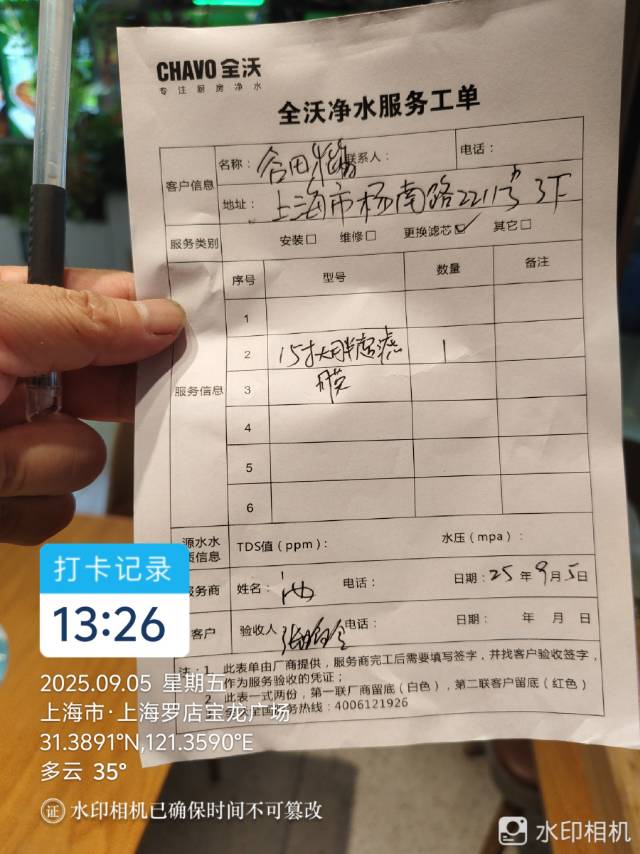 CHAVO 全沃
专注厨房净水
全沃净水服务工单
客户信息 名称： 联系人： 电话：
地址： 上海市杨南路2211号 3F
服务类别 安装□ 维修□ 更换滤芯☑ 其它□
服务信息 序号 型号 数量 备注
1
2 15寸大胖 1
3 膜
4
5
6
源水水质信息 TDS值（ppm）： 水压（mpa）：
服务商 姓名： 电话： 日期：25 年 9 月 5 日
客户 验收人 电话： 日期： 年 月 日
注：1、此表单由厂商提供，服务商完工后需要填写签字，并找客户验收签字，
作为服务验收的凭证；
2、此表一式两份，第一联厂商留底（白色），第二联客户留底（红色）
务热线：4006121926
打卡记录
13:26
2025.09.05 星期五
上海市·上海罗店宝龙广场
31.3891°N,121.3590°E
多云 35°
证 水印相机已确保时间不可篡改
水印相机